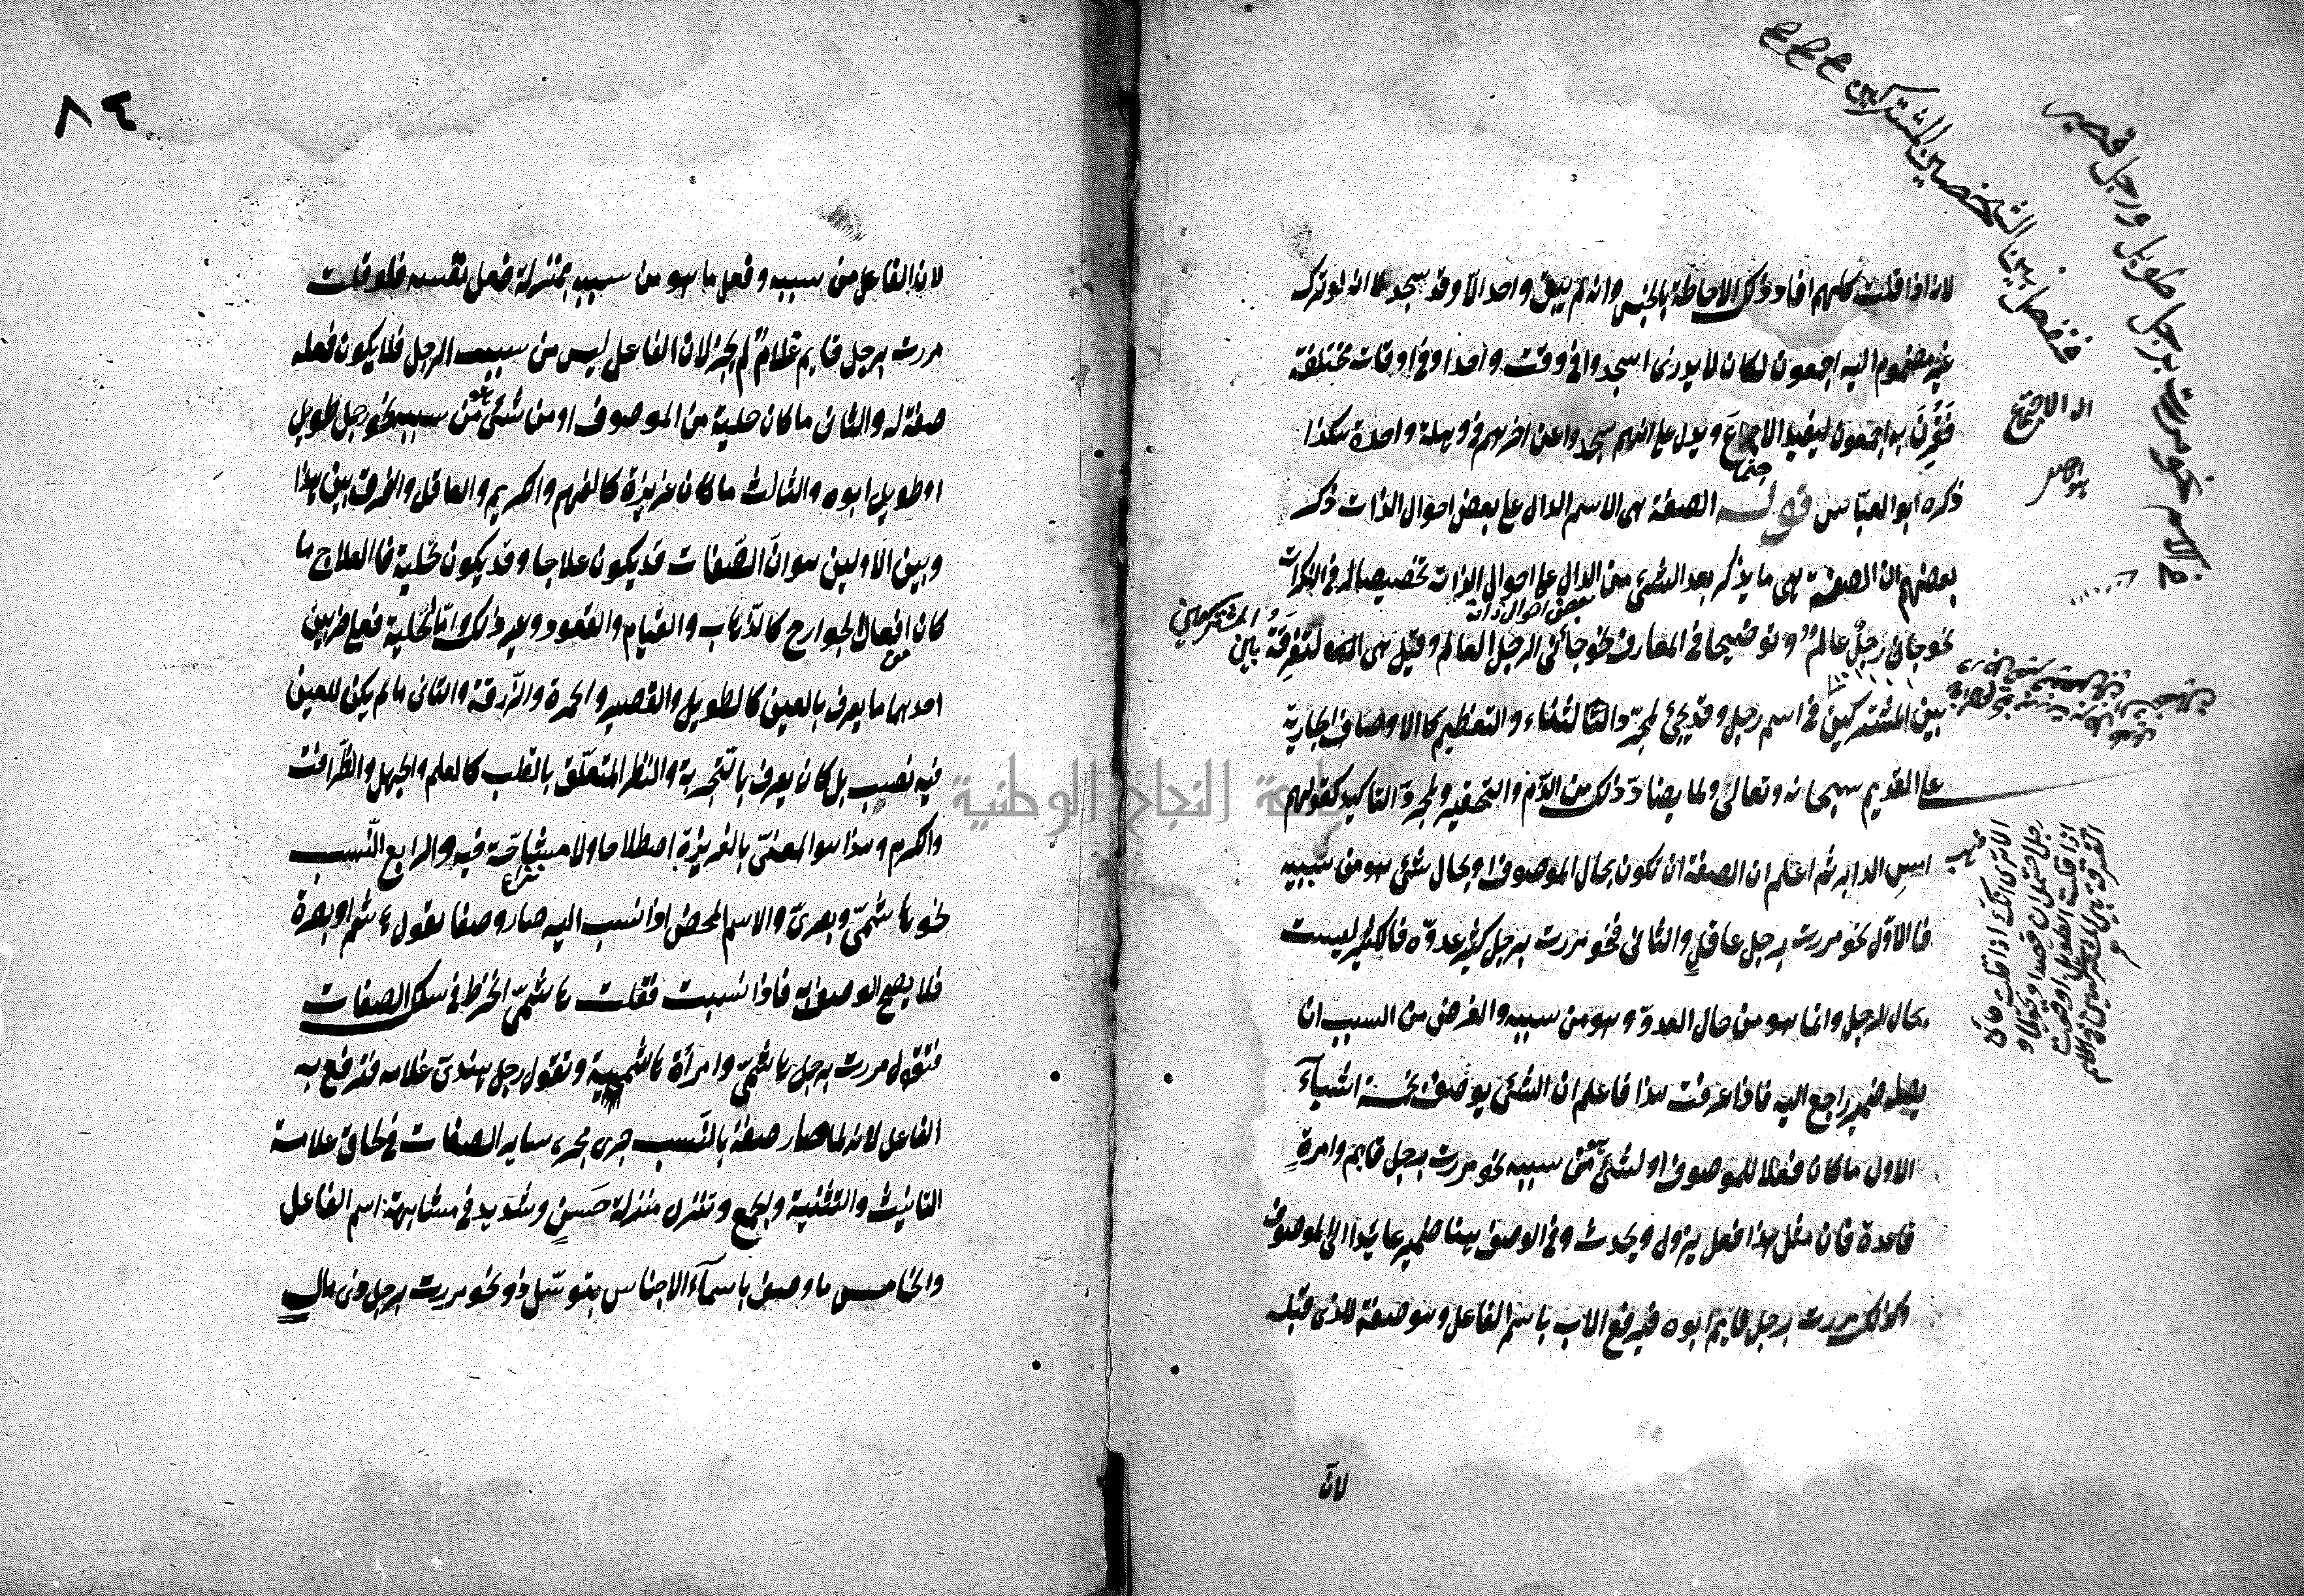 لانه اذا قلت كلهم افاد ذكر الاحاطة بالجنس وانه لم يبق واحد الا وقد سجد الا انه لو ترك
غير مضموم اليه اجمعون لكان لا يدرى اسجدوا فى وقت واحد او فى اوقات مختلفة
فقُرِنَ به اجمعون ليفيد الاجماع ويدل على انهم سجدوا عن اخرهم فى وهلة واحدة هكذا
ذكره ابو العباس قوله الصفة هى الاسم الدال على بعض احوال الذات ذكر
بعضهم ان الصفة هى ما يذكر بعد الشىء من الدال على احوال الذات تخصيصا له فى النكرات
نحو جاءنى رجل عالم وتوضيحا فى المعارف نحو جاءنى الرجل العالم وقيل هى للتفرقة بين
بين المشتركين فى اسم رجل وقد يجىء لمجرد الثناء والتعظيم كالاوصاف الجارية
على القديم سبحانه وتعالى ولما يضاد ذلك من الذم والتحقير ولمجرد التاكيد كقولهم
امسِ الدابر ثم اعلم ان الصفة ان تكون بحال الموصوف او بحال شىء هو من سببه
فالاول نحو مررت برجل عاقل والثانى فنحو مررت برجل كثير عدوه فالكثير ليست
بحال لرجل وانما هو من حال العدو وهو من سببه والغرض من السبب ان
يصله ضمير راجع اليه فاذا عرفت هذا فاعلم ان الشىء يوصف بخمسة اشياء
الاول ما كان فعلا للموصوف او لشىء من سببه نحو مررت برجل قايم وامرة
قاعدة فان مثل هذا فعل يزول ويحدث وفى الوصف ههنا ضمير عايد الى الموصوف
وكذلك مررت برجل قايم ابوه فيرفع الاب باسم الفاعل وهو صفة للذى قبله
لان
المشتركين
بعض احوال ذاته
فى الاسم نحو مررت برجل طويل ورجل قصير
فتفصل بين الشخصين المشتركين
الا ترى انك اذا قلت جاءنى
رجل احتمل ان قصيرا وطويلا و
اذا قلت الطويل اوقعت
التفرقة بين المشتركين فى الاسم
جامعة النجاح الوطنية
٨٤
لان الفاعل من سببه وفعل ما هو من سببه بمنزلة فعل نفسه فلو قلت
مررت برجل قايم غلام لم يجز لان الفاعل ليس من سبب الرجل فلا يكون فعله
صفة له والثانى ما كان حلية من الموصوف او من شىء هو من سببه نحو رجل طويل
او طويل ابوه والثالث ما كان غريزة كالفهم والكريم والعاقل والفرق بين هذا
وبين الاولين هو ان الصفات قد يكون علاجا وقد يكون تحلية فالعلاج ما
كان افعال الجوارح كالذهاب والقيام والقعود وغير ذلك واما التحلية فعلى ضربين
احدهما ما يعرف بالعين كالطويل والقصير والحمرة والزرقة والثانى ما لم يكن للعين
فيه نصيب بل كان يعرف بالتجربة والنظر المتعلق بالقلب كالعلم والجهل والظرافت
والكرم وهذا هو المعنى بالغريزة اصطلاحا ولا مشاحة فيه والرابع النسب
نحو هاشمى وبصرى والاسم المحض اذا نسب اليه صار وصفا تقول هاشم او بصرة
فلا يصح الوصف فاذا نسبت فقلت هاشمى انخرط فى سلك الصفات
فتقول مررت برجل هاشمى وامراة هاشمية وتقول رجل هندى غلامه فترفع به
الفاعل لانه لما صار صفة بالنسب جرى مجرى ساير الصفات فى لحاق علامة
التانيث والتثنية والجمع وتنزل منزلة حسن وشديد فى مشابهة اسم الفاعل
والخامس ما وصف باسماء الاجناس بتوسل ذو نحو مررت برجل ذى مال